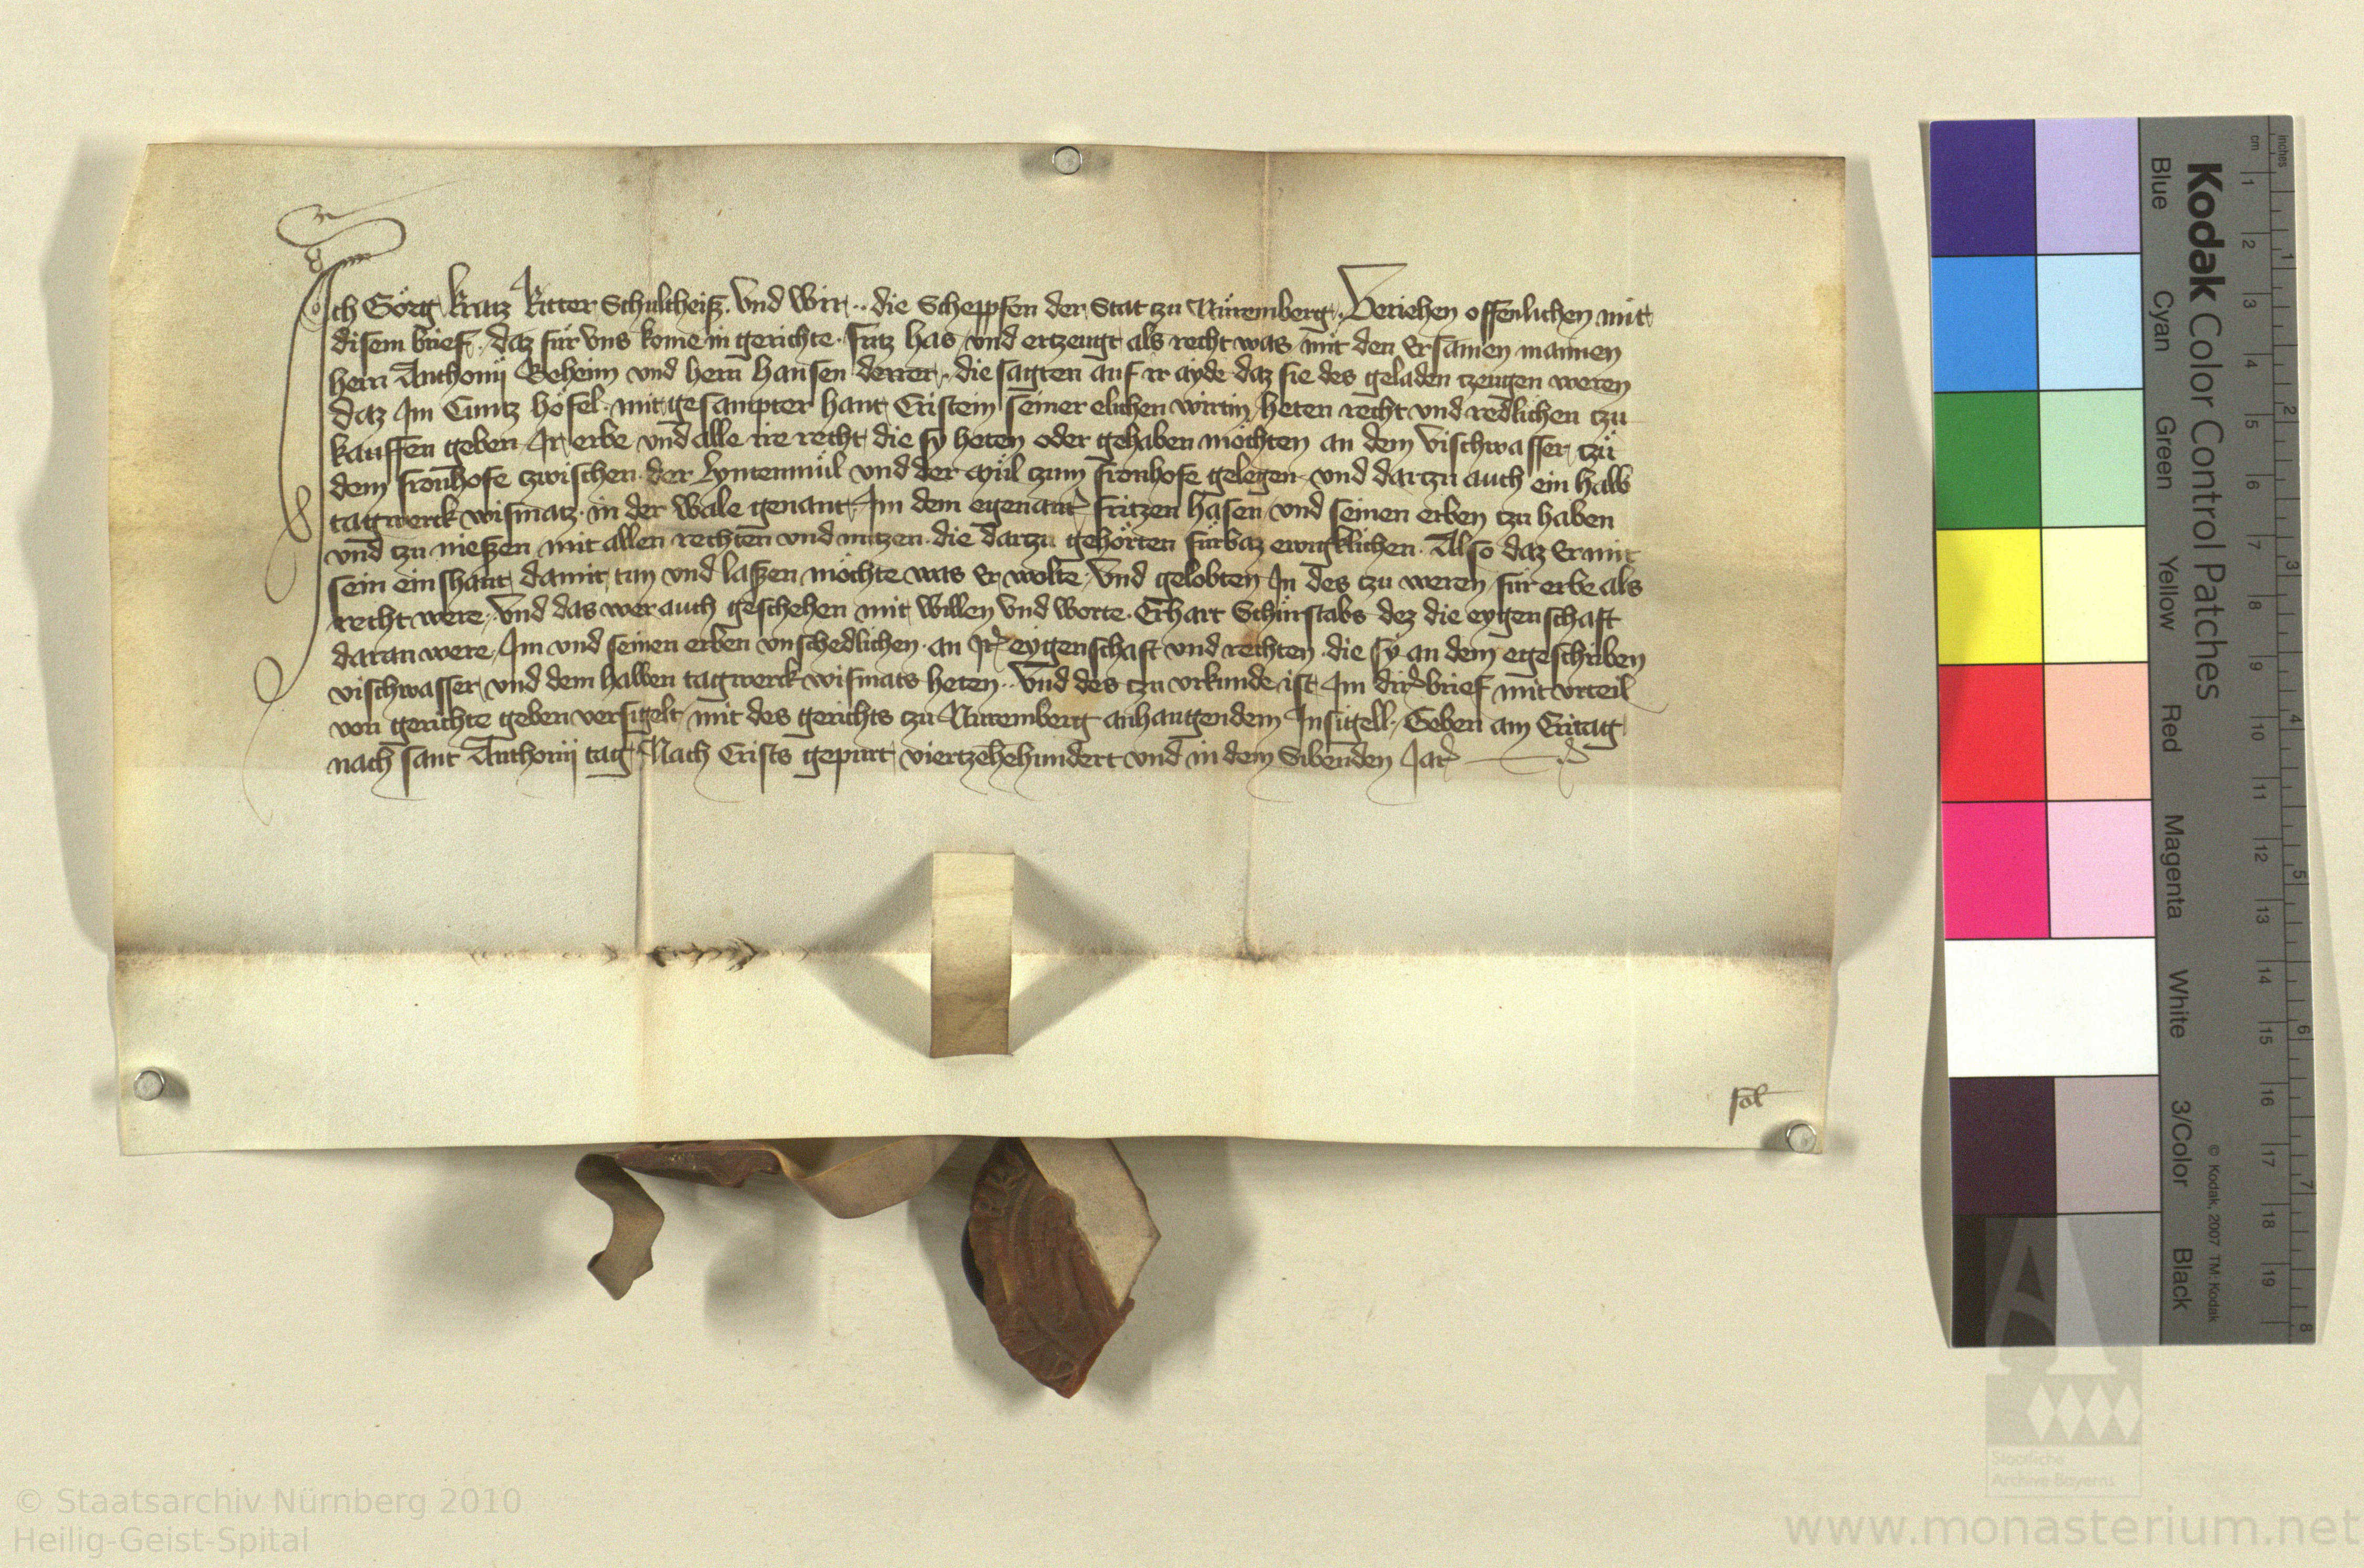 Ich Görg Kratz Ritter Schultheiß. Vnd Wir .. die Schepffen der Stat zu Nüremberg. Veriehen offenlichen mit
disem brief. daz für vns kome in gerichte. Fritz has, vnd ertzeugt als recht was mit den Ersamen mannen
hern Anthonij Beheim vnd hern Hansen derrer. die sagten auf ir ayde daz sie des geladen tzeugen weren
daz Jm Cuntz höfel. mit gesampter hant Cristein seiner elichen wirtin, heten recht vnd redlichen tzu
kauffen geben Jr erbe vnd alle ire recht, die sy heten oder gehaben möchten an dem vischwasser, tzu
dem fronhofe tzwischen der Lyntenmül vnd der Mül tzum fronhofe gelegen, vnd dartzu auch ein halb
tagwerck wismatz. in der Wale genant. Jm dem egenant Fritzen hasen, vnd seinen erben tzu haben
vnd tzu nießen mit allen rechten vnd nutzen. die dartzu gehörten fürbaz ewigklichen. Also daz Er mit
sein einshant, damit, tun vnd laßen möchte was Er wolte. Vnd gelobten Jn des tzu weren, für erbe als
recht were. Vnd das wer auch geschehen mit Willen vnd Worte. Erhart Schürstabs dez die eygenschaft
daran were, Jm vnd seinen erben vnschedlichen. an Jr eygenschaft vnd rechten. die sy an dem egeschriben
vischwasser, vnd dem halben tagwerck wismats heten. Vnd des tzu vrkunde ist Jm dir brief mit vrteil
von gerichte geben versigelt, mit des gerichts tzu Nuremberg anhangendem Jnsigell. Geben am Eritag
nach sant Anthonij tag. Nach Crists gepurt, viertzehehundert vnd in dem Sibenden Jar
sol
Kodak Color Control Patches
© Kodak, 2007 TM: Kodak
inches 1 2 3 4 5 6 7 8
cm 1 2 3 4 5 6 7 8 9 10 11 12 13 14 15 16 17 18 19
Blue Cyan Green Yellow Red Magenta White 3/Color Black
Staatliche
Archive Bayerns
© Staatsarchiv Nürnberg 2010
Heilig-Geist-Spital
www.monasterium.net